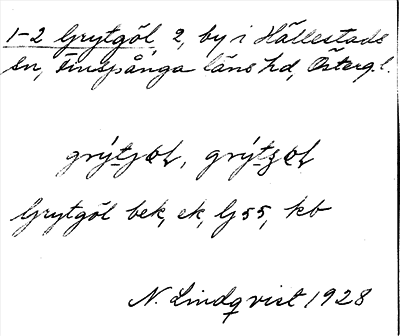 1-2 Grytgöl, 2, by i Hällestads
sn, Finspånga läns hd, Österg.l.
Grytgöl bek, ek, Lj 55, kb
N. Lindqvist 1928